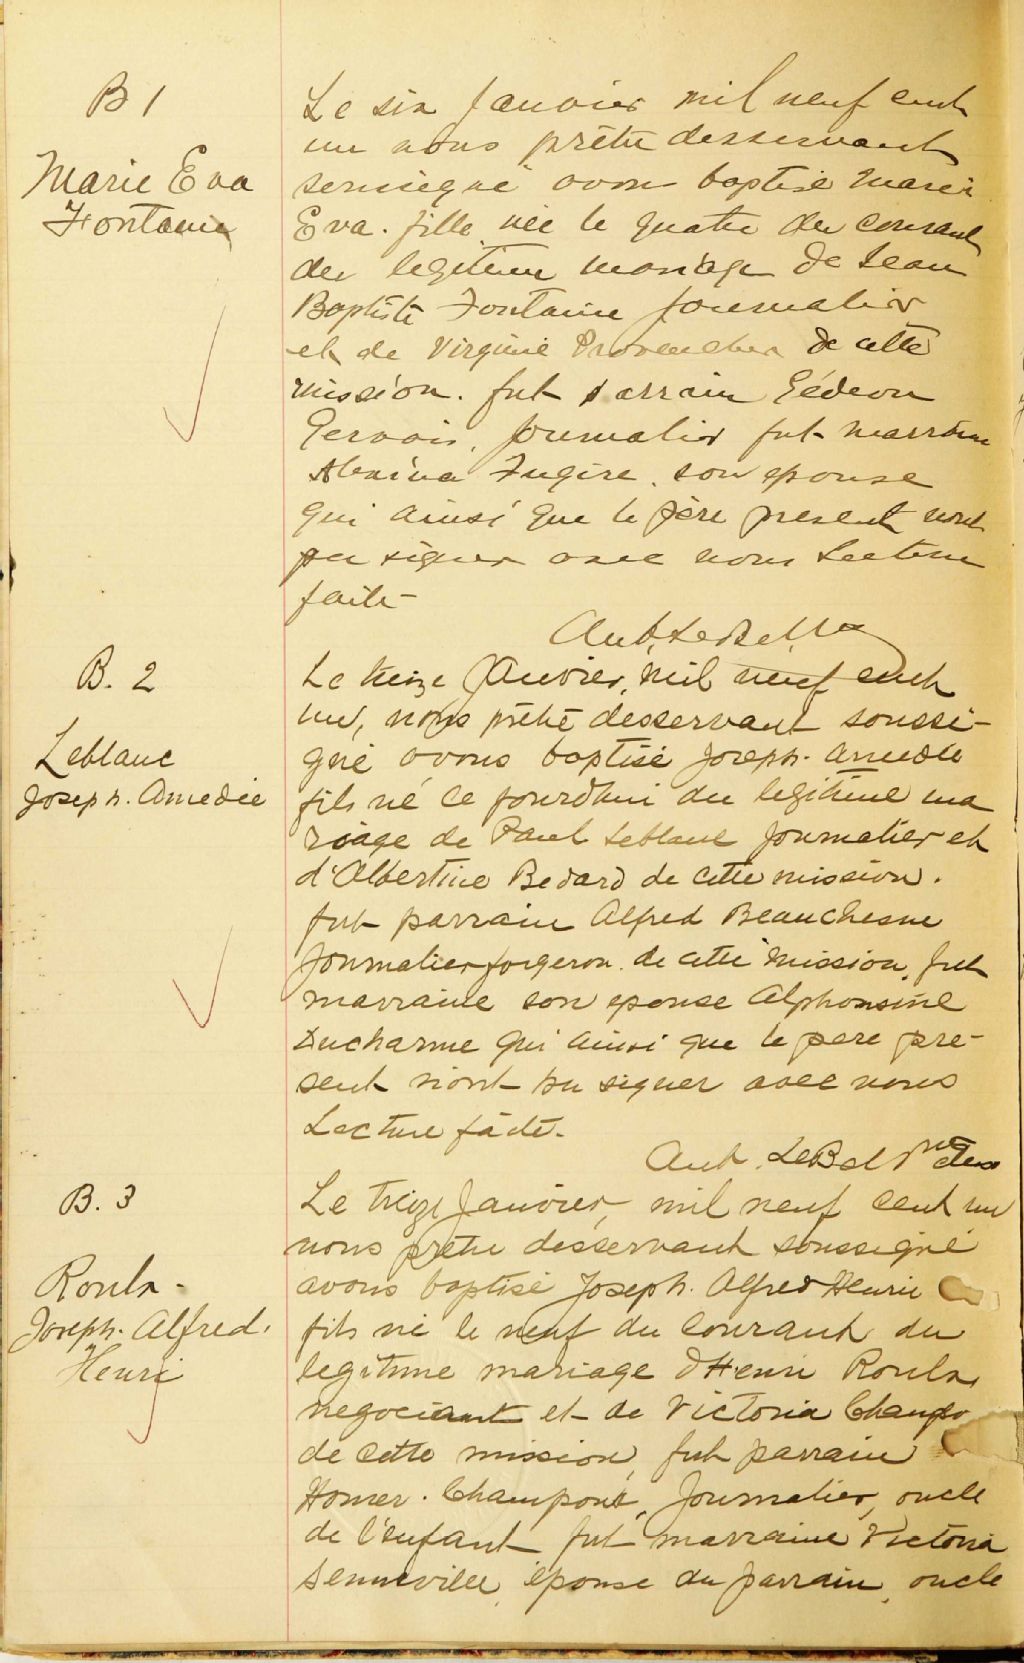 B 1
Marie Eva
Fontaine
Le six Janvier mil neuf cent
un nous prêtre desservant
avons baptisé Marie
Eva. fille née le quatre du courant
du legitime mariage de Jean
Baptiste Fontaine journalier
et de Virginie Provencher de cette
mission. fut parrain Gédeon
Gervais, journalier fut marraine
son epouse
qui ainsi que le père present n'ont
pu signer avec nous Lecture
faite -
B. 2
Leblanc
Joseph. Amedée
Le treize Janvier, mil neuf cent
un, nous prêtre desservant soussi-
gné avons baptisé Joseph. Amedée
fils né ce jourd'hui du legitime ma
riage de Paul Leblanc journalier et
d'Albertine Bedard de cette mission.
fut parrain Alfred Beauchesne
Journalier forgeron. de cette mission, fut
marraine son epouse Alphonsine
Ducharme qui ainsi que le pere pre-
sent n'ont pu signer avec nous
Lecture faite.
Ant. LeBel Ptre
B. 3
Roulx -
Joseph. Alfred.
Henri
Le treize Janvier, mil neuf cent un
nous prêtre desservant soussigné
avons baptisé Joseph. Alfred Henri
fils né le neuf du courant du
legitime mariage d'Henri Roulx,
negociant et de Victoria Champo
de cette mission, fut parrain
Homer. Champoux, Journalier, oncle
de l'enfant fut marraine Victoria
Senneville, épouse du parrain, oncle